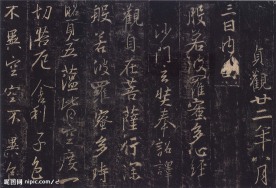 貞觀廿二年八月
三日內
般若波羅蜜多心經
沙門玄奘奉詔譯
觀自在菩薩行深
般若波羅蜜多時
照見五蘊皆空度一
切苦厄舍利子色
不異空空不異色
昵图网 nipic.com